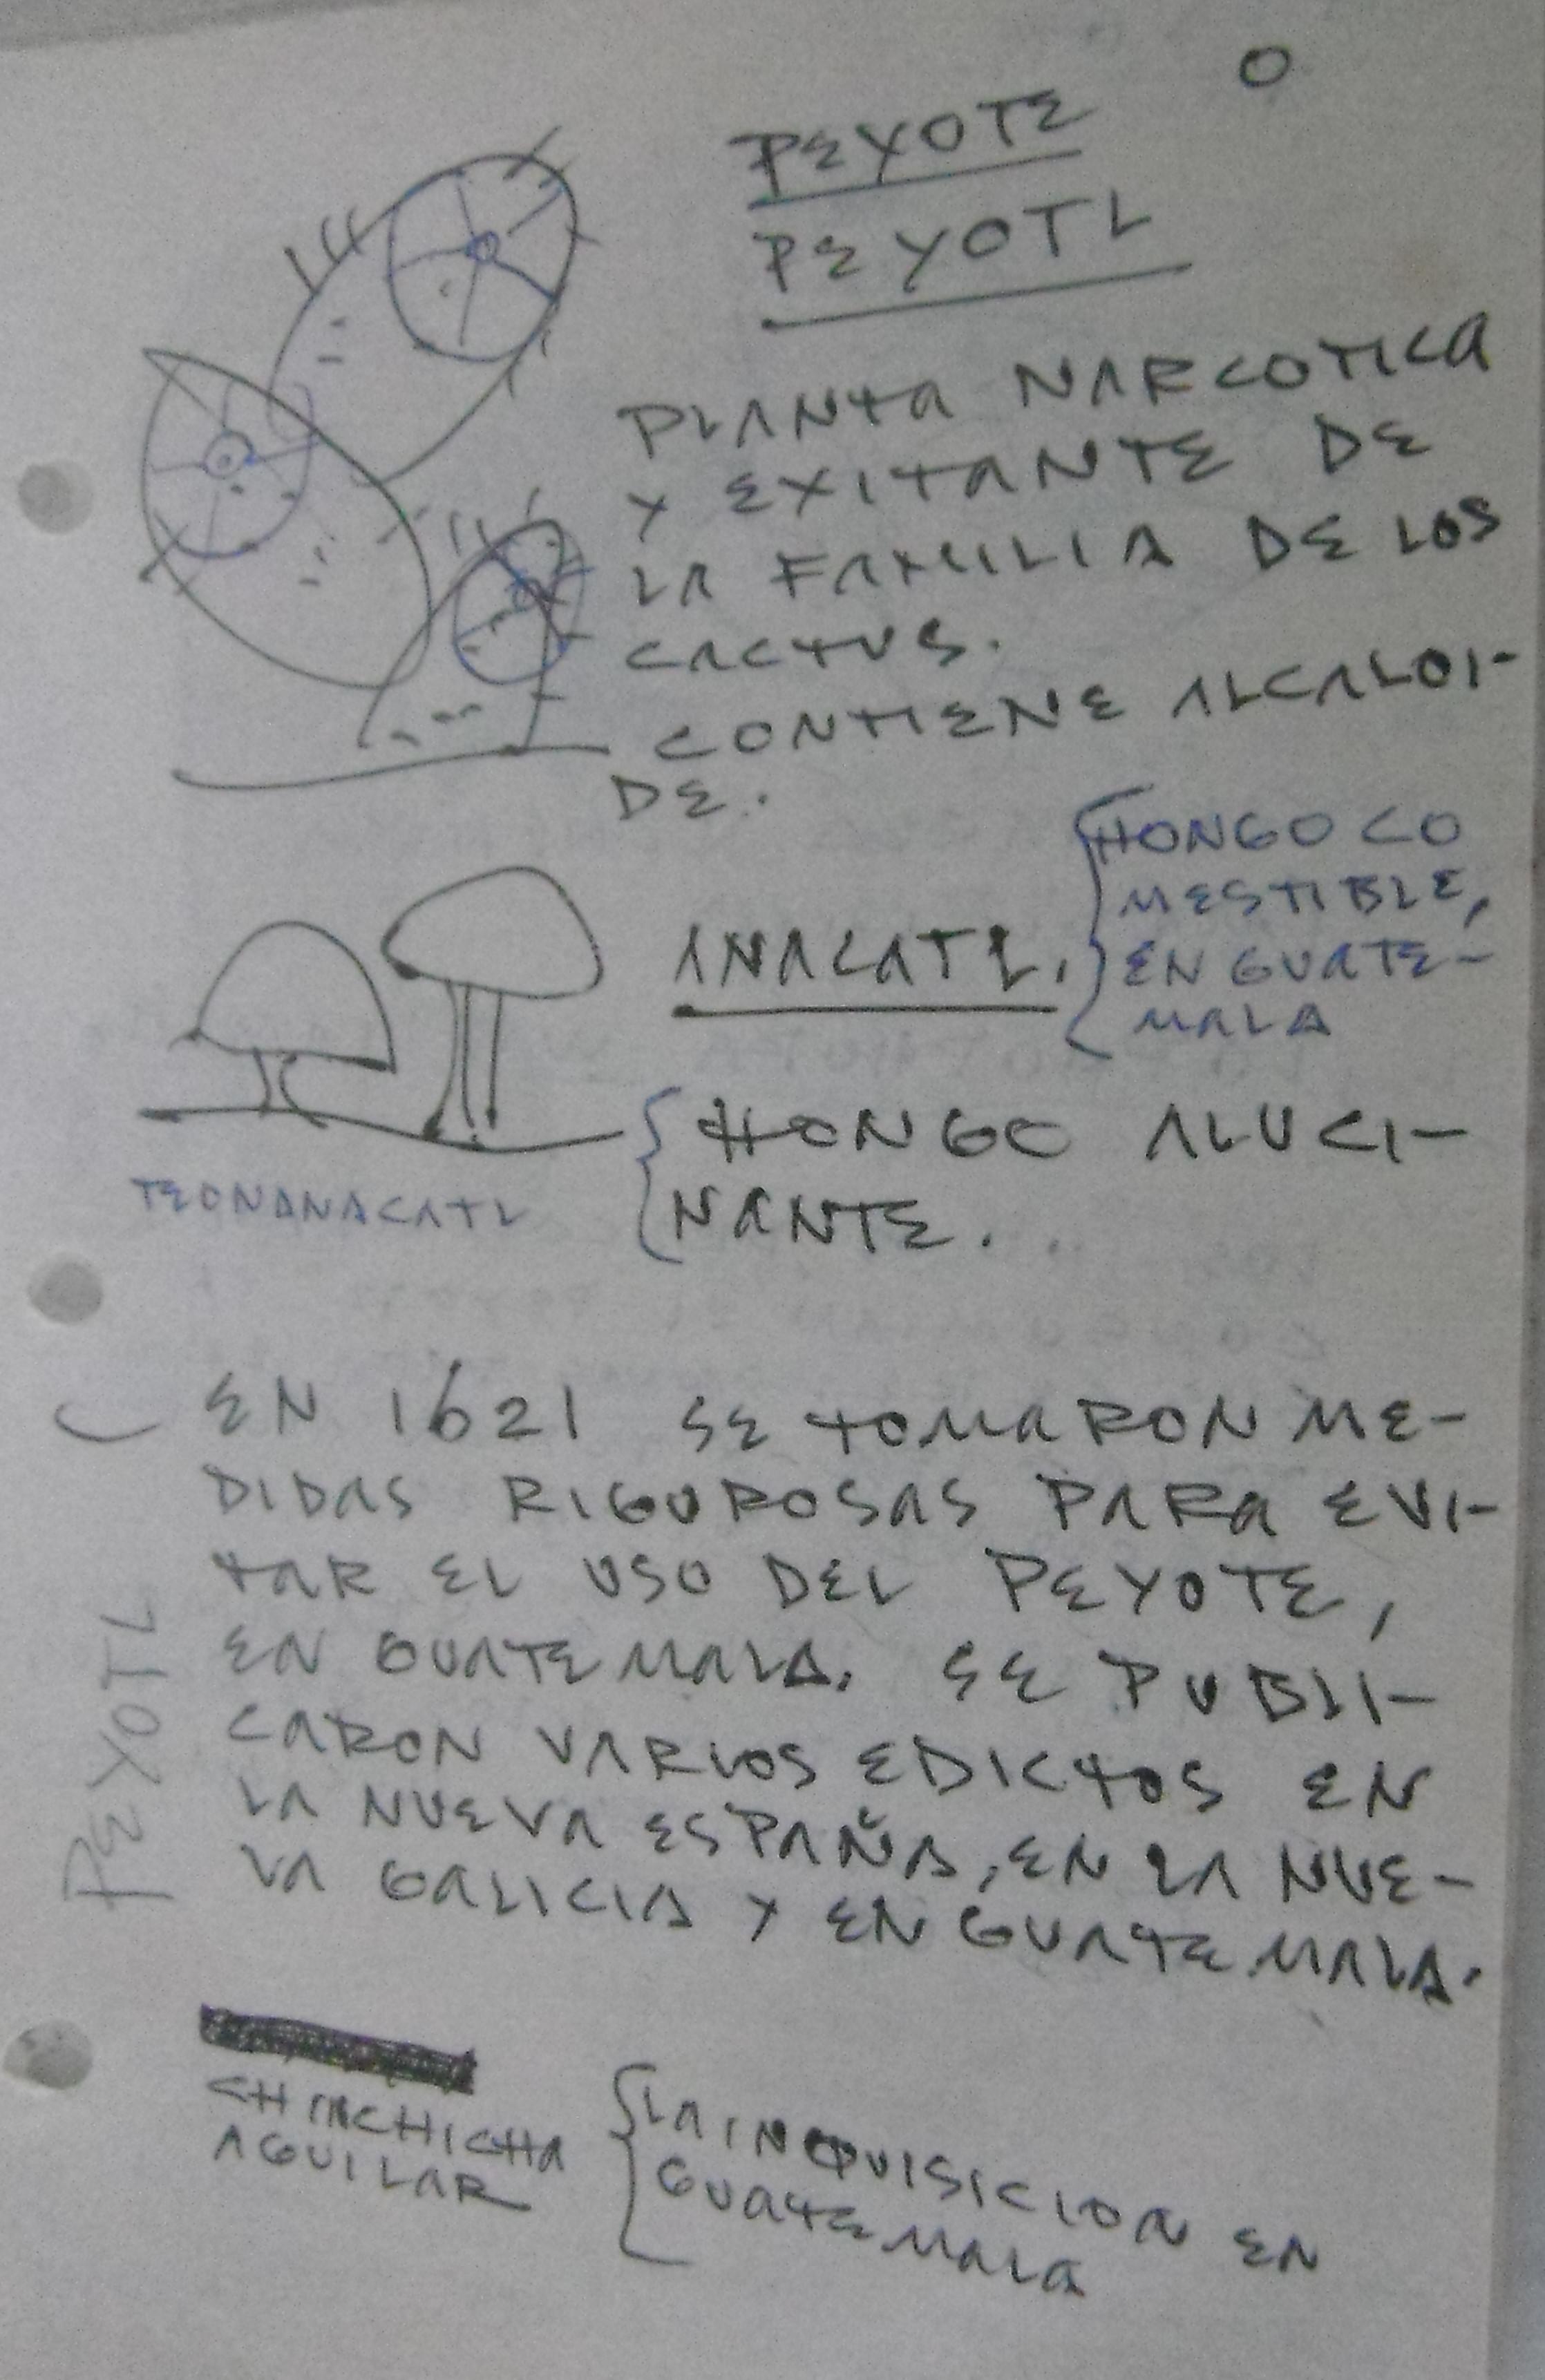 PEYOTE
PEYOTL
PLANTA NARCOTICA
Y EXITANTE DE
LA FAMILIA DE LOS
CACTUS.
CONTIENE ALCALOI-
DE.
ANACATL.
HONGO CO
MESTIBLE,
EN GUATE-
MALA
TEONANACATL
HONGO ALUCI-
NANTE.
PEYOTL
EN 1621 SE TOMARON ME-
DIDAS RIGUROSAS PARA EVI-
TAR EL USO DEL PEYOTE,
EN GUATEMALA. SE PUBLI-
CARON VARIOS EDICTOS EN
LA NUEVA ESPAÑA, EN LA NUE-
VA GALICIA Y EN GUATEMALA.
CHINCHICHA
AGUILAR
LA INQUISICION EN
GUATEMALA